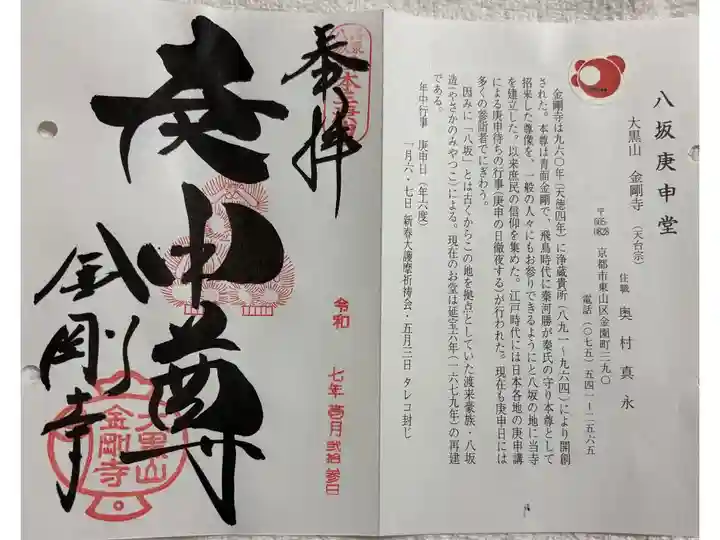 八坂庚申堂
大黒山 金剛寺 (天台宗)
住職 奥村真永
〒605-0828 京都市東山区金園町三九〇
電話 (〇七五) 五四一ー二五六五
金剛寺は九六〇年(天徳四年)に浄蔵貴所(八九一〜九六四)により開創
された。本尊は青面金剛で、飛鳥時代に秦河勝が秦氏の守り本尊として
招来した尊像を、一般の人々にもお参りできるようにと八坂の地に当寺
を建立した。以来庶民の信仰を集めた。江戸時代には日本各地の庚申講
による庚申待ちの行事(庚申の日徹夜する)が行われた。現在も庚申日には
多くの参詣者でにぎわう。
因みに「八坂」とは古くからこの地を拠点としていた渡来豪族・八坂
造(やさかのみやつこ)による。現在のお堂は延宝六年(一六七九年)の再建
である。
年中行事 庚申日(年六度)
一月六・七日 新春大護摩祈祷会・五月三日 タレコ封じ
奉拝
庚申尊
金剛寺
令和 七年 壱月 弐拾参日
大黒山
金剛寺